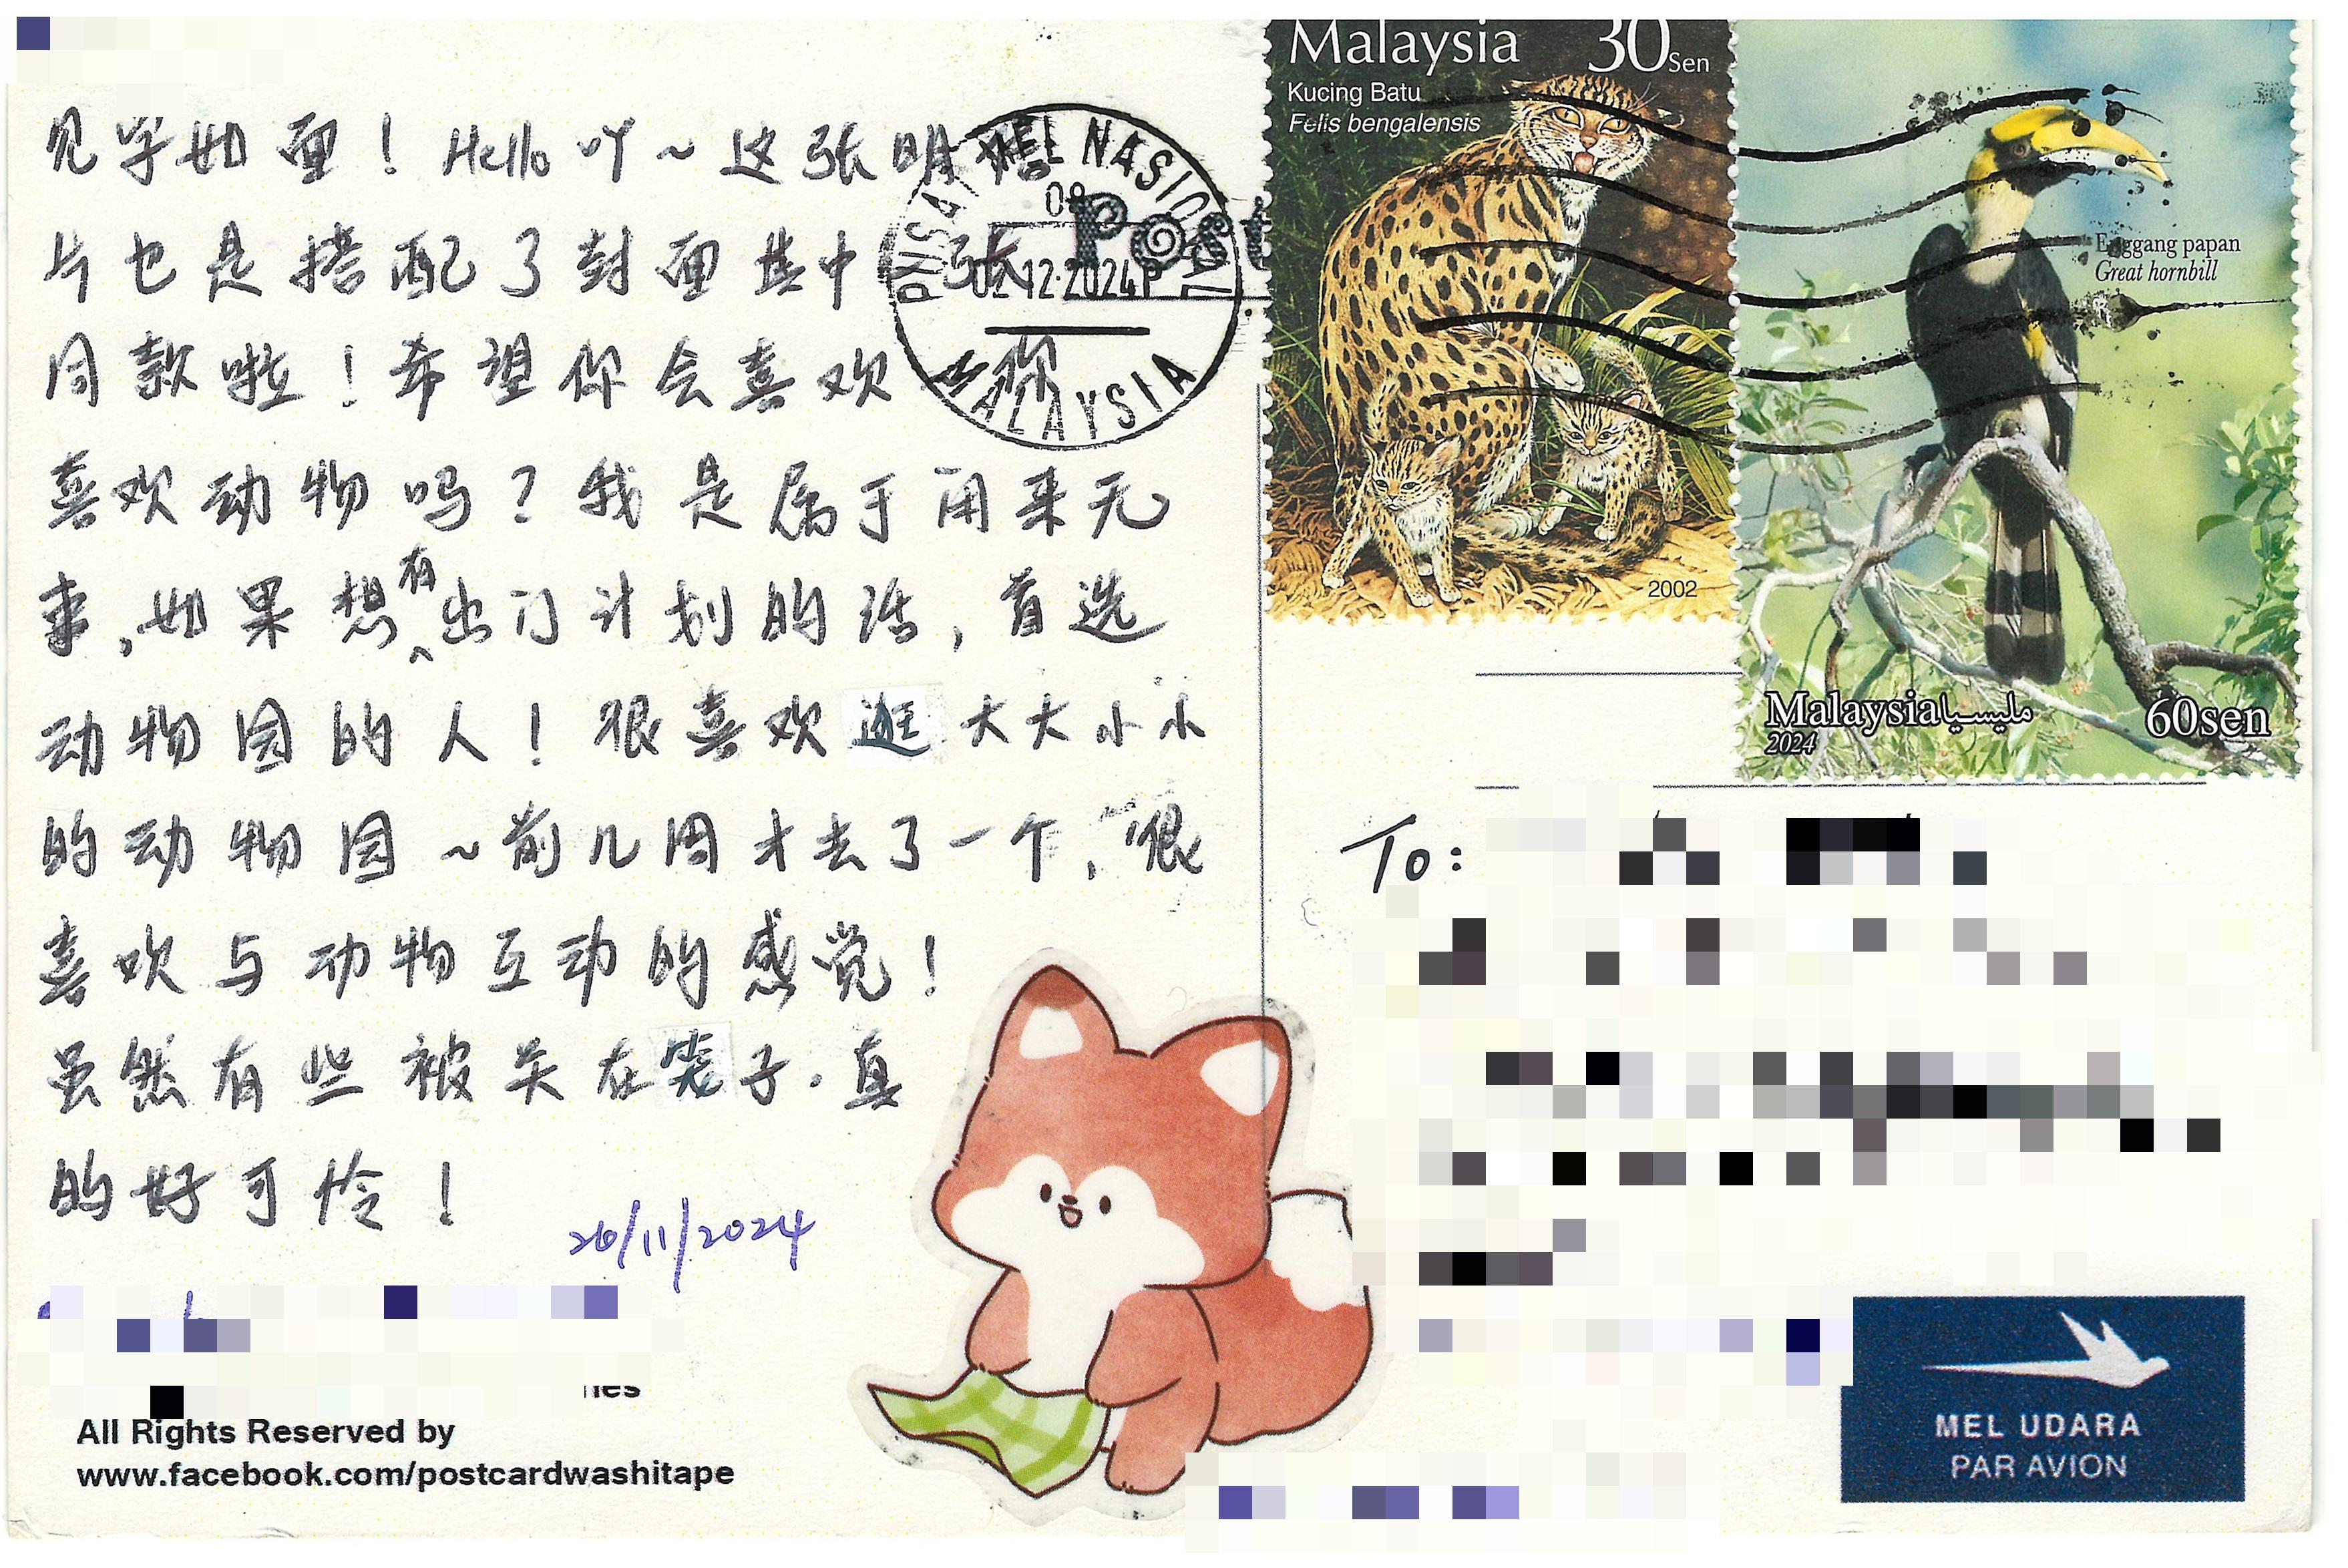 见字如面！Hello 吖～这张明信
片也是搭配了封面其中 张
同款啦！希望你会喜欢 你
喜欢动物吗？我是属于闲来无
来，如果想有出门计划的话，首选
动物园的人！很喜欢逛大大小小
的动物园～前几周才去了一个，很
喜欢与动物互动的感觉！
虽然有些被关在笼子.真
的好可怜！
26/11/2024
All Rights Reserved by
www.facebook.com/postcardwashitape
PUSAT MEL NASIONAL
08
Post
02.12.2024P
MALAYSIA
Malaysia 30Sen
Kucing Batu
Felis bengalensis
2002
Enggang papan
Great hornbill
Malaysia مليسيا
2024
60sen
To:
MEL UDARA
PAR AVION